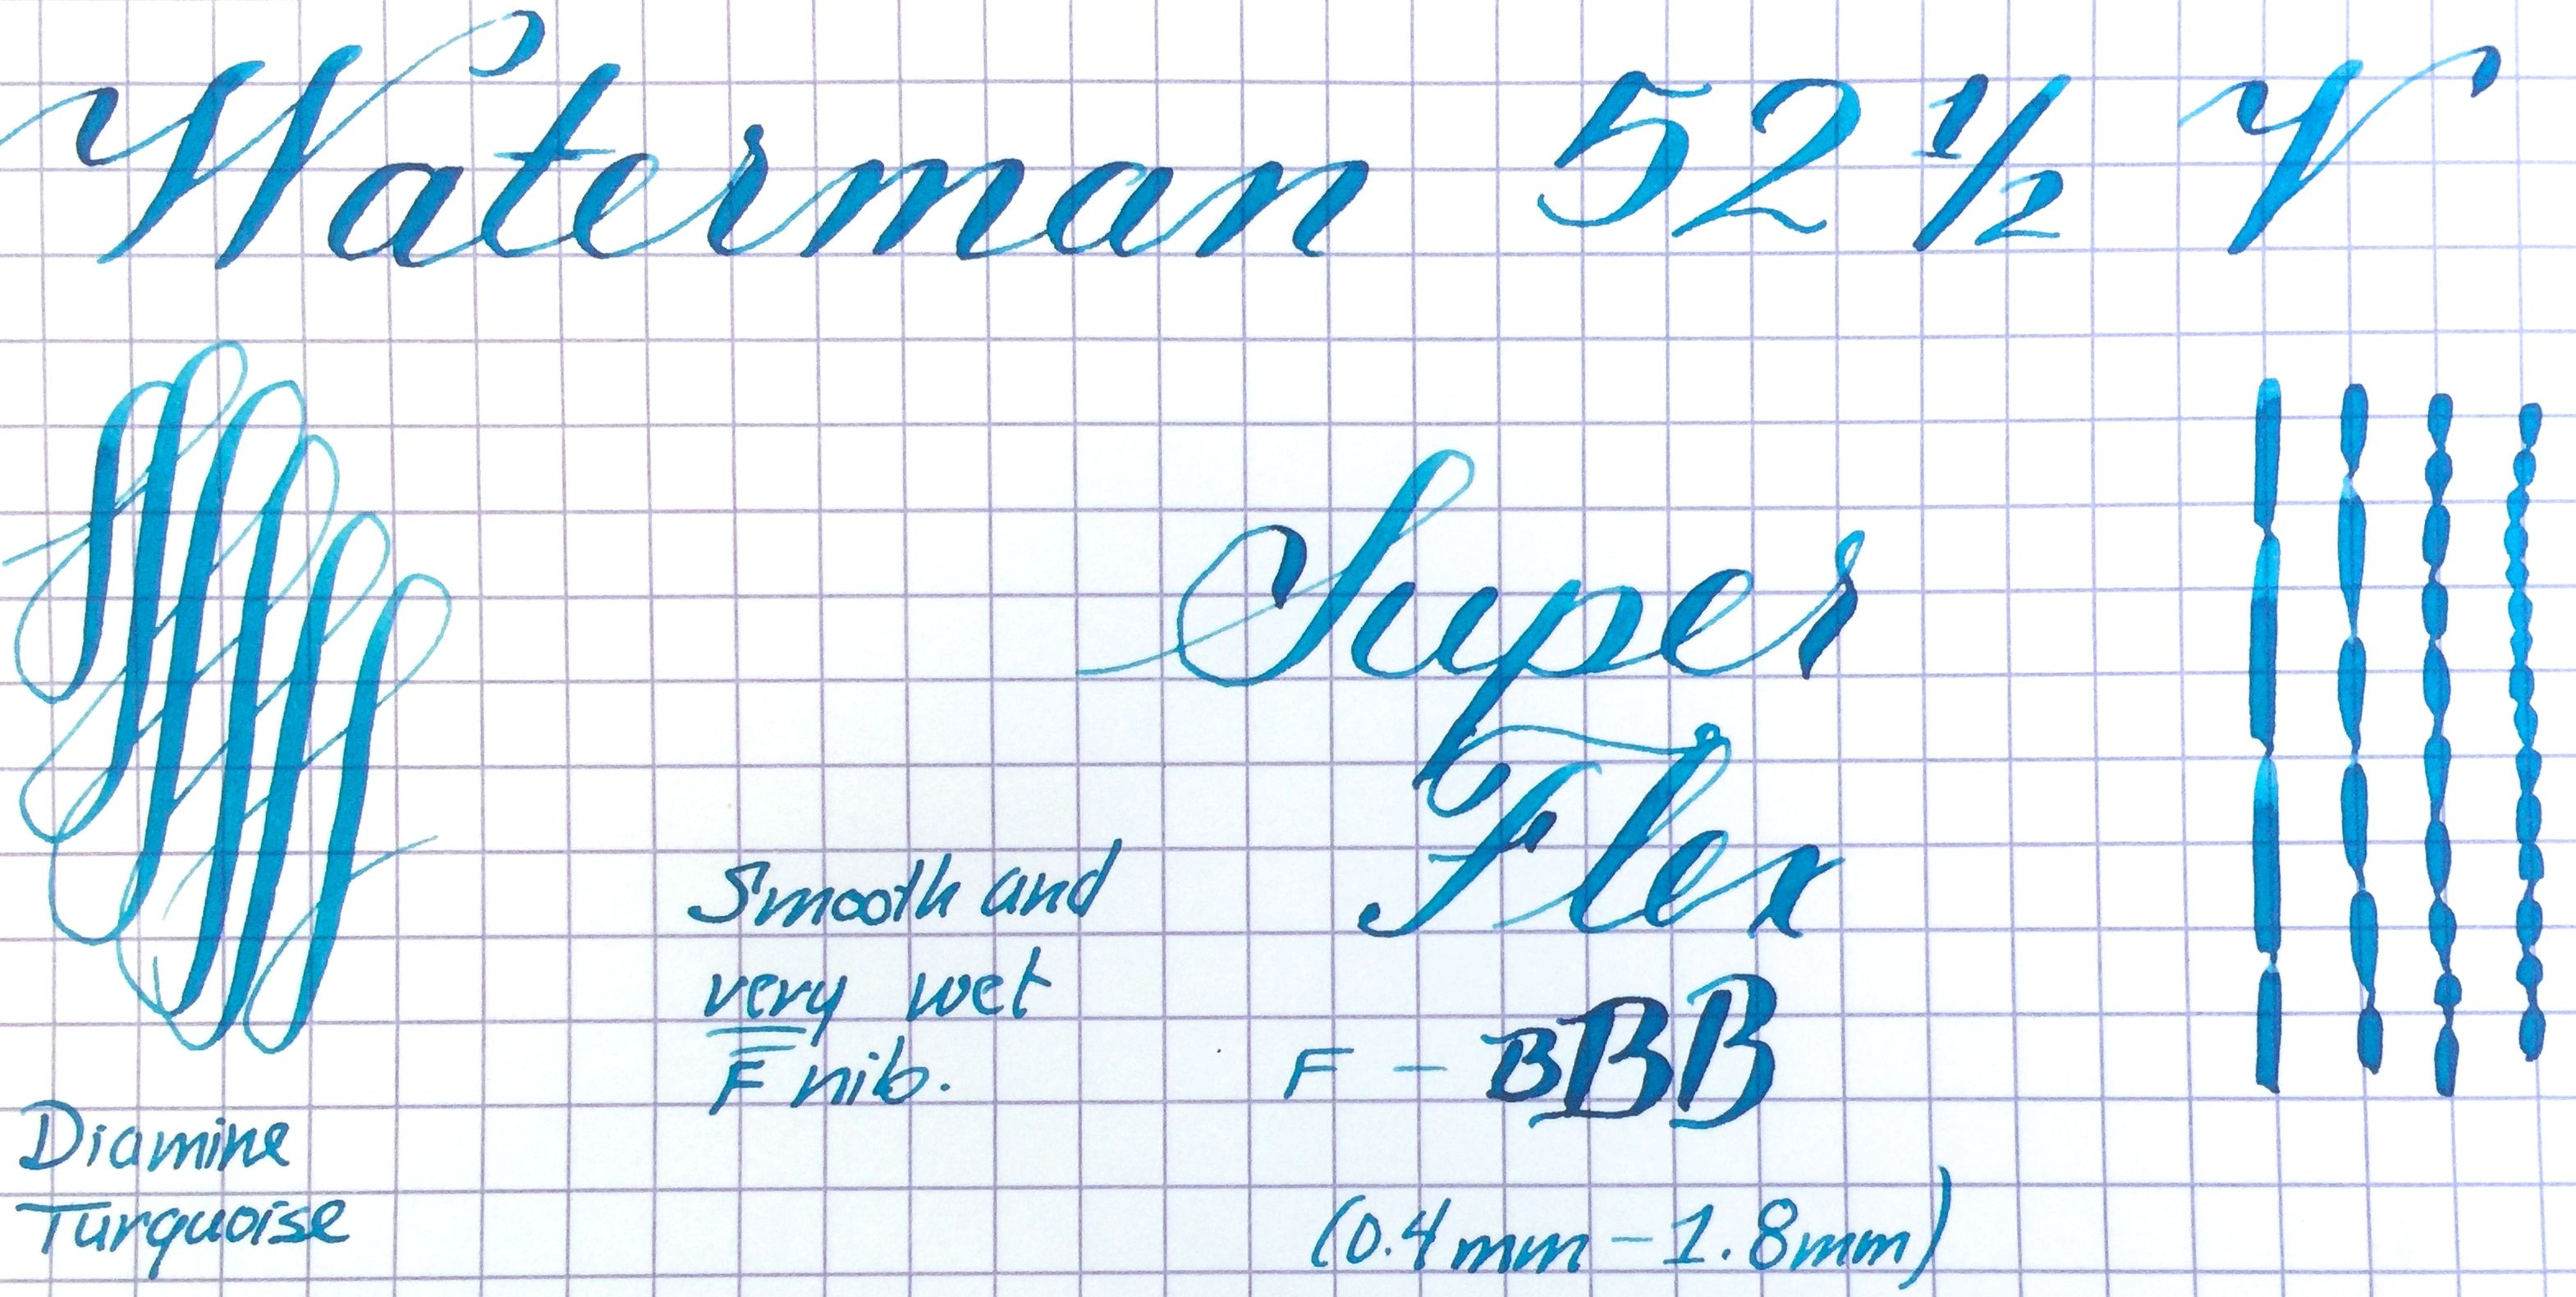 Waterman 52 ½ V
Super
Flex
Smooth and
very wet
F nib.
F – BBB
Diamine
Turquoise
(0.4mm – 1.8mm)